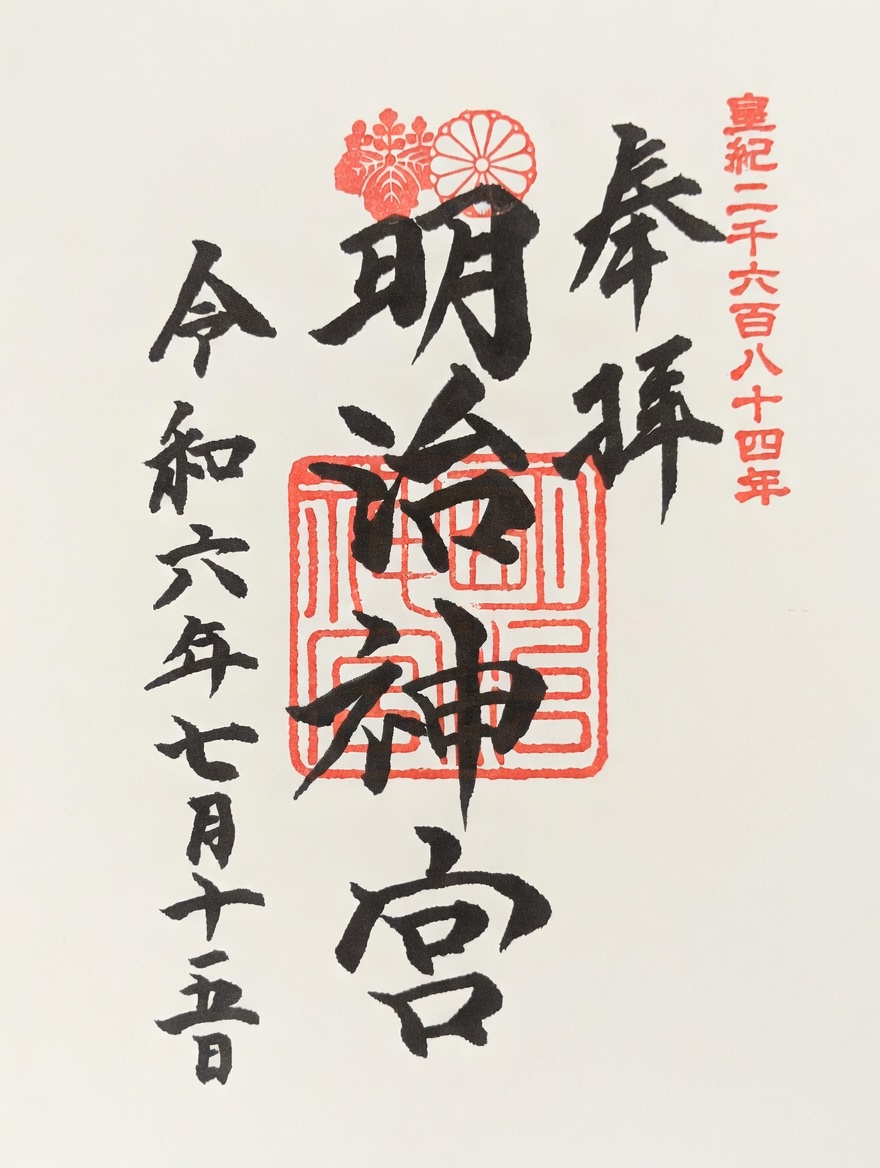 皇紀二千六百八十四年
奉拝
明治神宮
明治
神宮
令和六年七月十五日